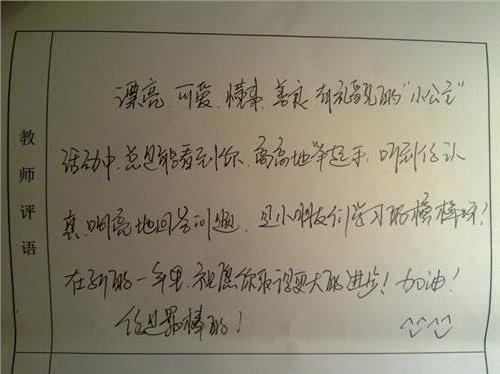 教师评语
漂亮、可爱、懂事、善良、有礼貌的“小公主”
活动中，总是能看到你，高高地举起手，听到你认
真、响亮地回答问题，是小朋友们学习的榜样呀！
在新的一年里，祝愿你取得更大的进步！加油！
你是最棒的！ ^^^^